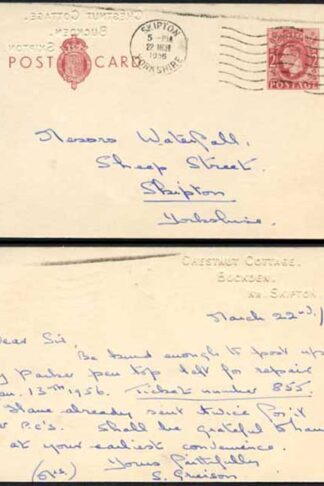 CHESTNUT COTTAGE.
BUCKDEN,
SKIPTON
POST CARD
SKIPTON
5 - PM
22 MCH
1956
YORKSHIRE
POSTAGE
Messrs Waterfall,
Sheep Street.
Skipton
Yorkshire.
CHESTNUT COTTAGE.
BUCKDEN.
NR. SKIPTON
March 22nd,
ear Sir
Be kind enough to post up
y parker pen top left for repair
an. 13TH 1956. Ticket number 855.
I have already sent twice for it
P.C's. Shall be grateful
at your earliest convenience.
Yours faithfully
(Mrs.) S. Greison